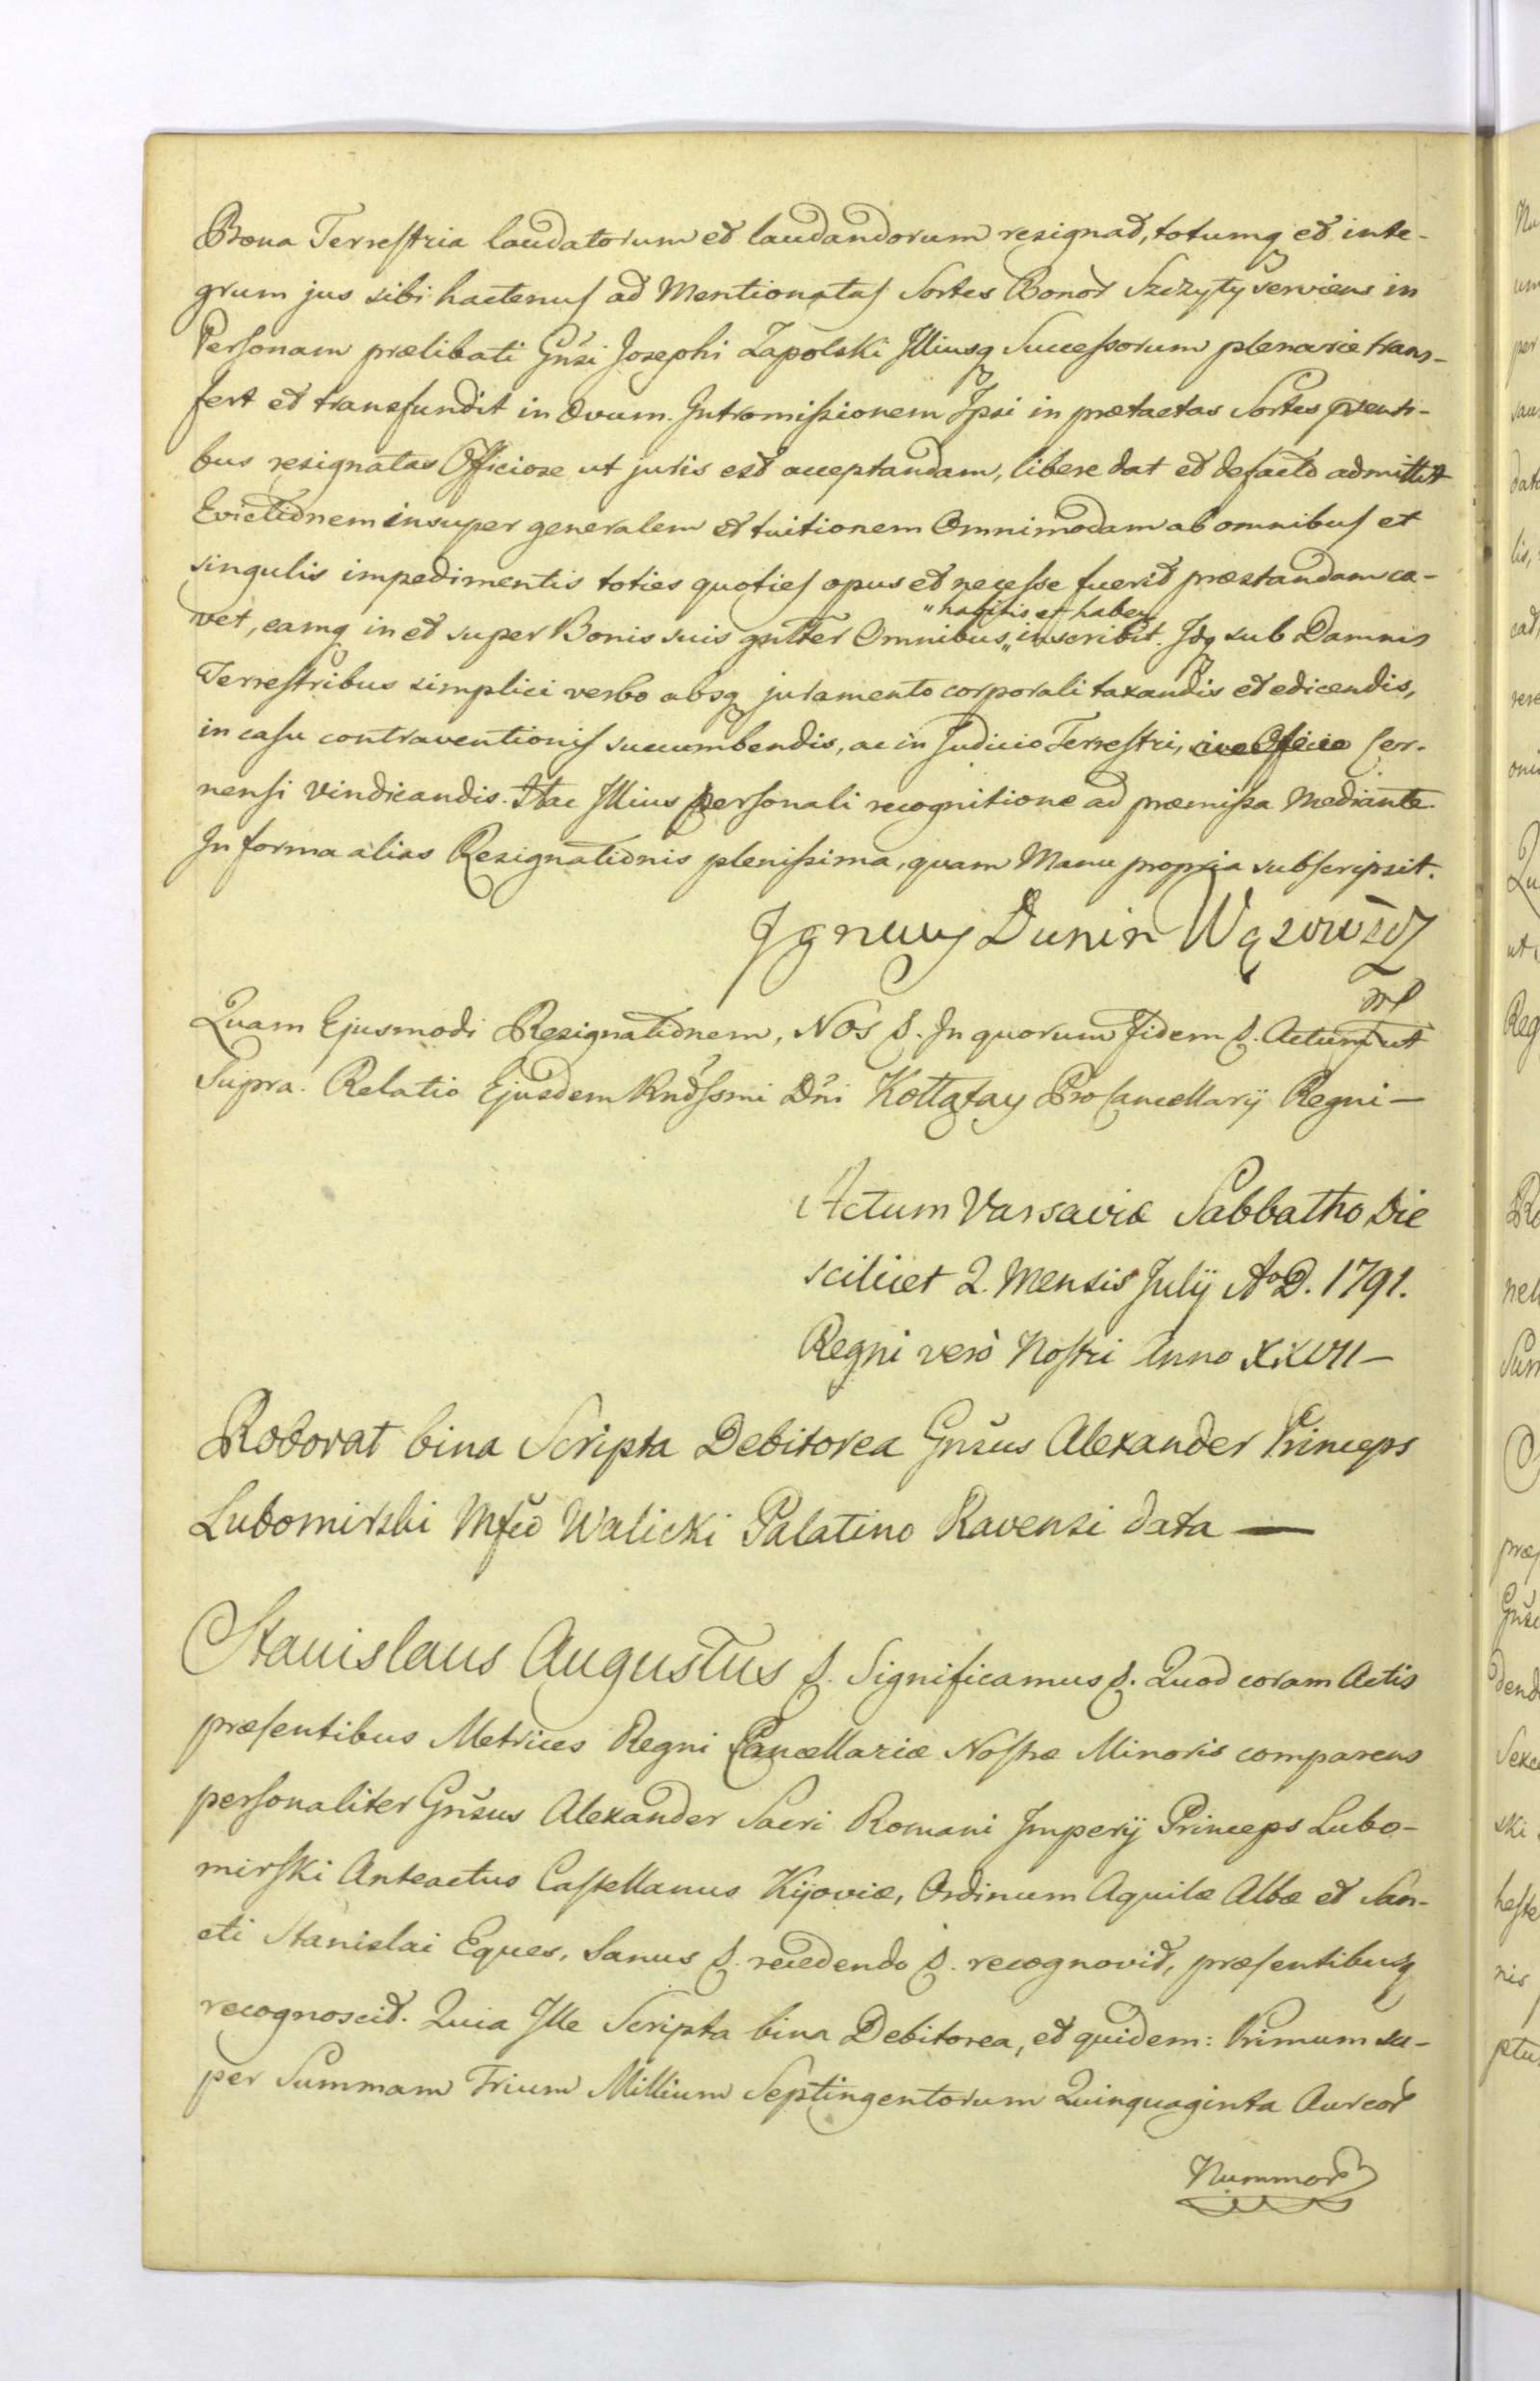 Bona Terrestria laudatorum et laudandorum resignat, totumq et inte-
grum jus sibi hactenus ad Mentionatas Sortes Bonor Szczyty serviens in
Personam prælibati Gnsi Josephi Zapolski Illiusq Successorum plenarie trans-
fert et transfundit in Ævum. Intromissionem Ipsi in prætactas Sortes præsenti-
bus resignatas Officiose ut juris est acceptandam, libere dat et defacto admittit
Evictionem insuper generalem et tuitionem Omnimodam ab omnibus et
singulis impedimentis toties quoties opus et necesse fuerit præstandam ca-
"habitis et haben
vet, eamq in et super Bonis suis gnlter Omnibus,, inscribit. Idq sub Damnis
Terrestribus simplici verbo absq juramento corporali taxandis et edicendis,
in casu contraventionis succumbendis, ac in Judicio Terrestri, sive Officio Cer-
nensi vindicandis. Hac Illius personali recognitione ad præmissa Mediante.
In forma alias Resignationis plenissima, quam Manu propria subscripsit.
Ignacy Dunin Wąsowicz
mp
Quam Ejusmodi Resignationem, Nos &. In quorum Fidem &. Actum ut
Supra. Relatio Ejusdem Rndssmi Dni Kołłątay ProCancellarij Regni —
Actum Varsaviæ Sabbatho Die
scilicet 2. Mensis Julij AoD. 1791.
Regni verò Nostri Anno XXVII —
Roborat bina Scripta Debitorea Gnsus Alexander Princeps
Lubomirski Mfco Walicki Palatino Ravensi data —
Stanislaus Augustus &. Significamus &. Quod coram Actis
præsentibus Metrices Regni Cancellariæ Nostræ Minoris comparens
personaliter Gnsus Alexander Sacri Romani Imperij Princeps Lubo-
mirski Anteactus Castellanus Kijoviæ, Ordinum Aquilæ Albæ et San-
cti Stanislai Eques, Sanus &. recedendo &. recognovit, præsentibusq
recognoscit. Quia Ille Scripta bina Debitorea, et quidem: Primum su-
per Summam Trium Millium Septingentorum Quinquaginta Aureor
Nummor